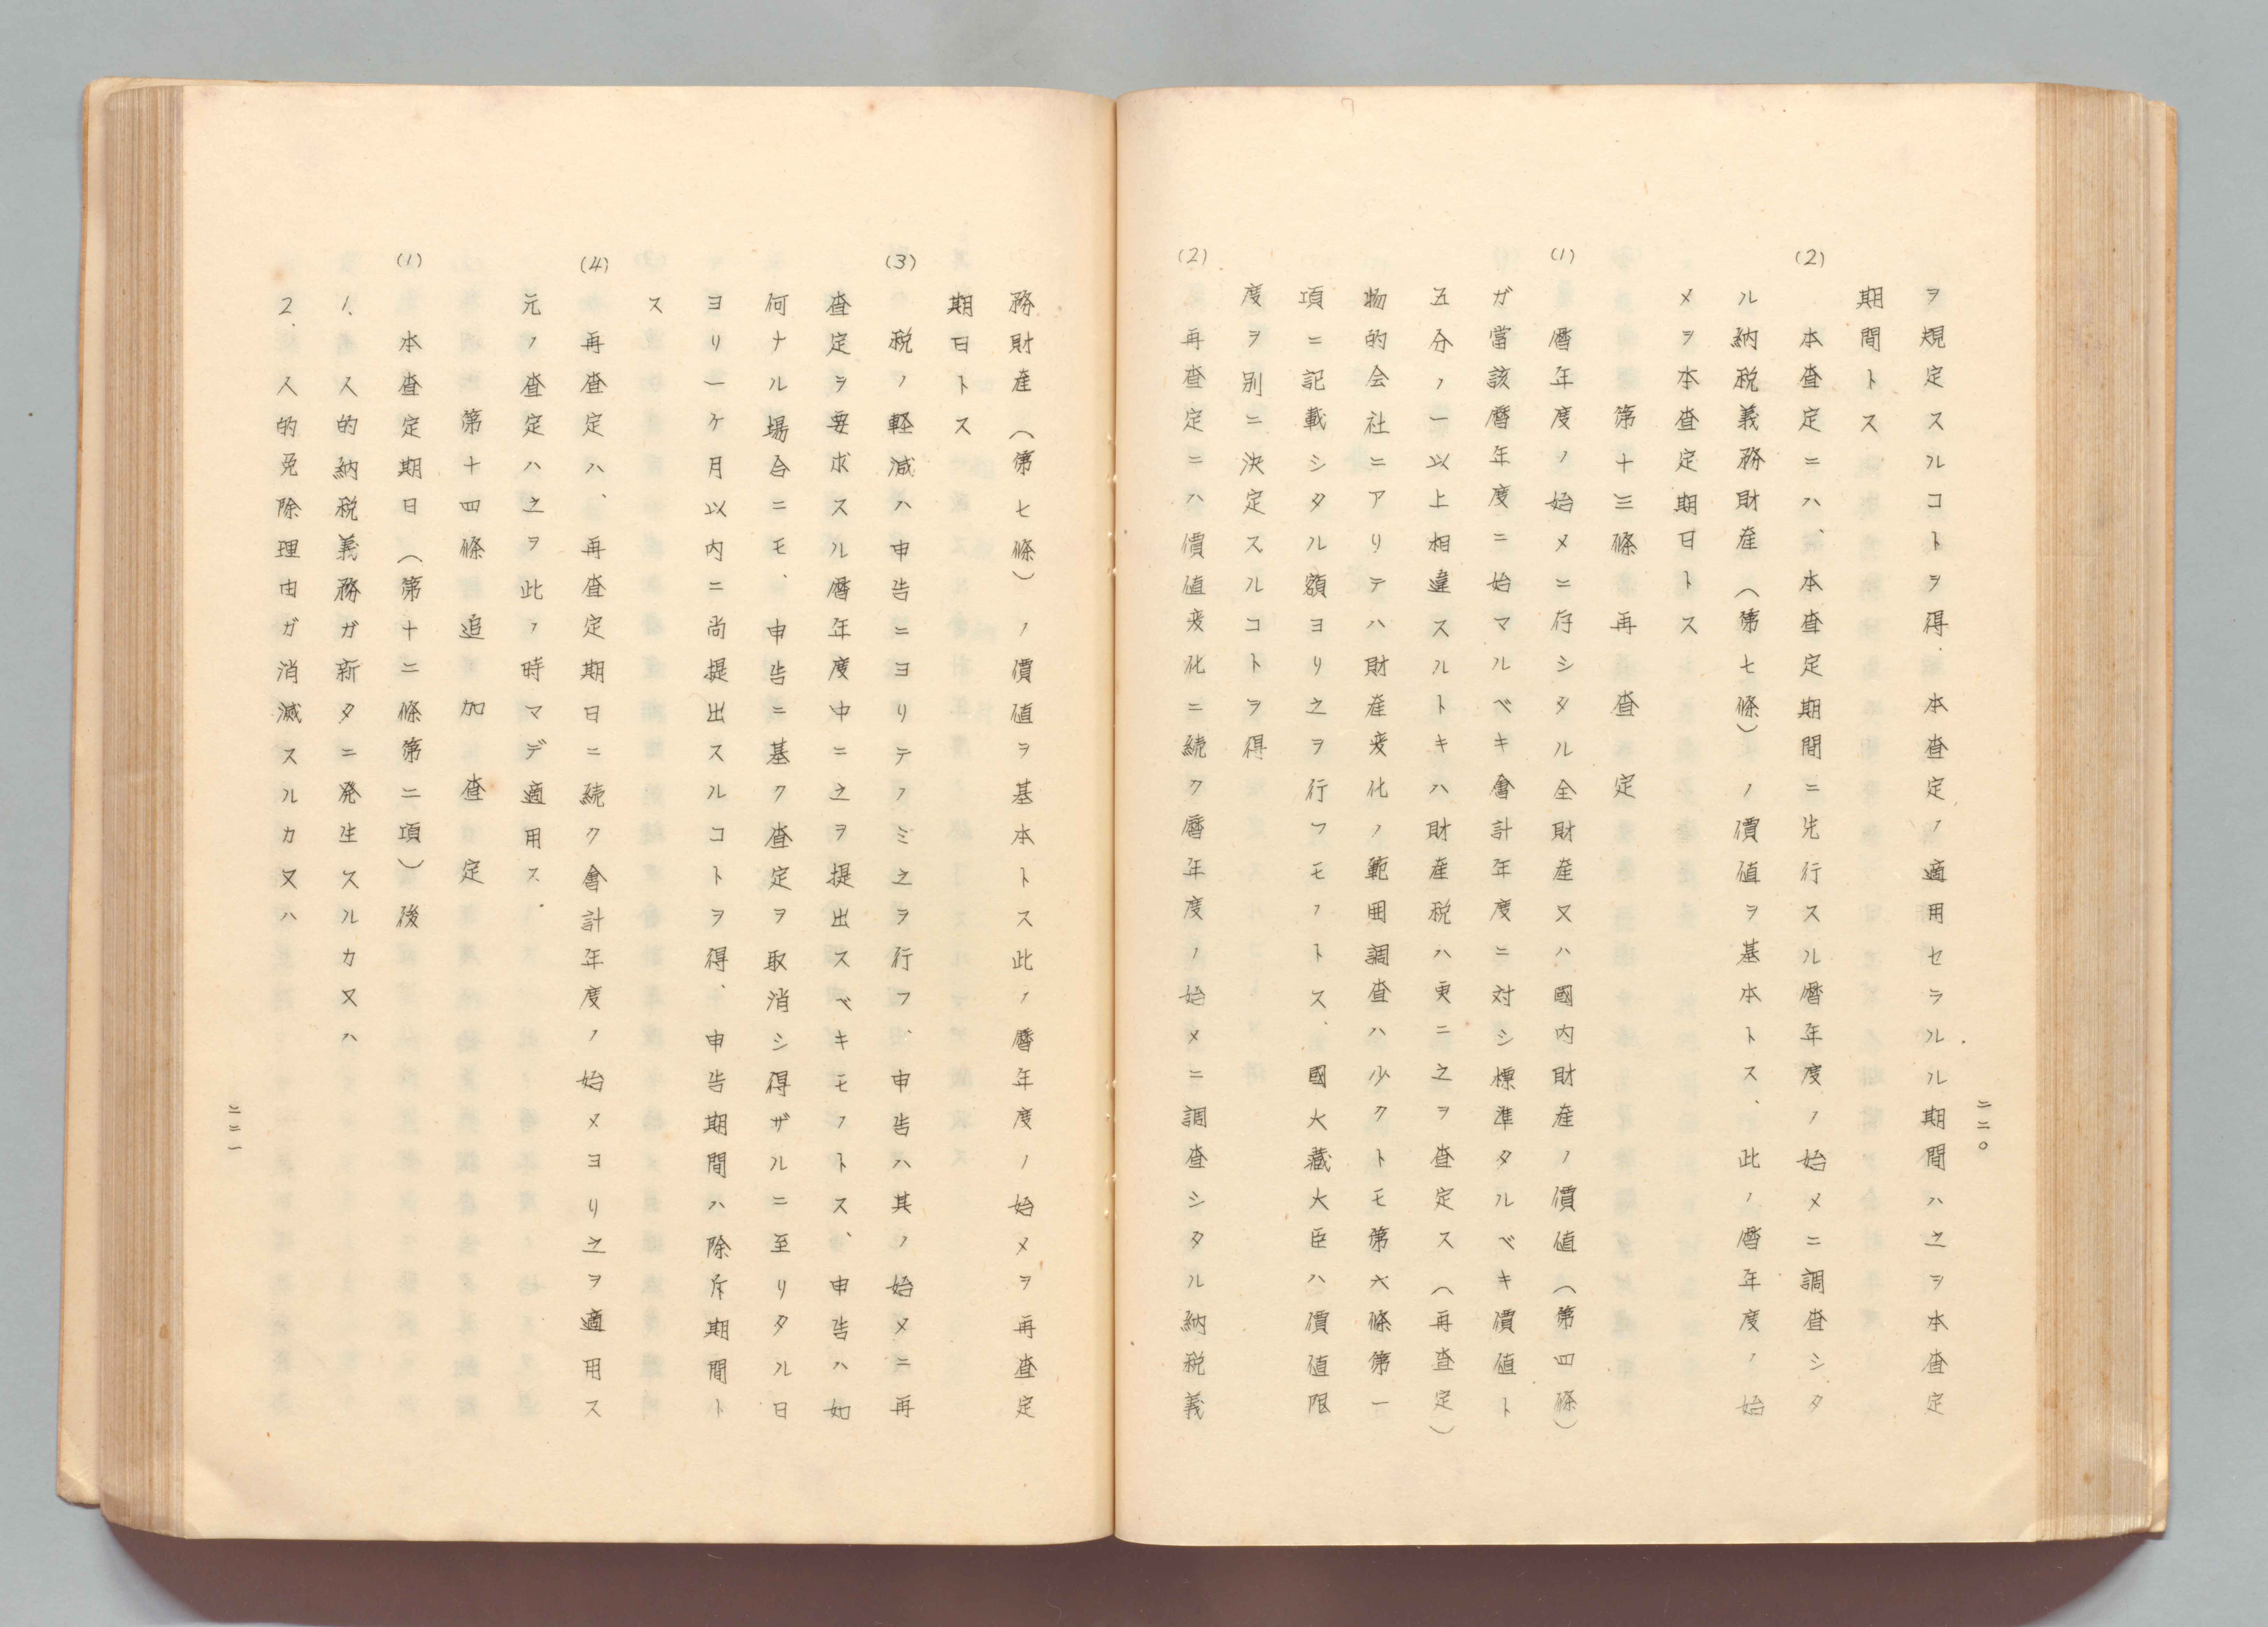 二二〇
ヲ規定スルコトヲ得.本査定ノ適用セラルル期間ハ之ヲ本査定
期間トス
(2) 本査定ニハ、本査定期間ニ先行スル暦年度ノ始メニ調査シタ
ル納税義務財産(第七條)ノ價値ヲ基本トス、此ノ暦年度ノ始
メヲ本査定期日トス
第十三條 再査定
(1) 暦年度ノ始メニ存シタル全財産又ハ國内財産ノ價値(第四條)
ガ當該暦年度ニ始マルベキ會計年度ニ対シ標準タルベキ價値ト
五分ノ一以上相違スルトキハ財産税ハ更ニ之ヲ査定ス(再査定)
物的会社ニアリテハ財産変化ノ範囲調査ハ少クトモ第六條第一
項ニ記載シタル額ヨリ之ヲ行フモノトス、國大藏大臣ハ價値限
度ヲ別ニ決定スルコトヲ得
(2) 再査定ニハ價値変化ニ続ク暦年度ノ始メニ調査シタル納税義
務財産(第七條)ノ價値ヲ基本トス此ノ暦年度ノ始メヲ再査定
期日トス
(3) 税ノ軽減ハ申告ニヨリテノミ之ヲ行フ、申告ハ其ノ始メニ再
査定ヲ要求スル暦年度中ニ之ヲ提出スベキモノトス、申告ハ如
何ナル場合ニモ、申告ニ基ク査定ヲ取消シ得ザルニ至リタル日
ヨリ一ケ月以内ニ尚提出スルコトヲ得、申告期間ハ除斥期間ト
ス
(4) 再査定ハ、再査定期日ニ続ク會計年度ノ始メヨリ之ヲ適用ス
元ノ査定ハ之ヲ此ノ時マデ適用ス.
第十四條 追加査定
(1) 本査定期日(第十二條第二項)後
1、人的納税義務ガ新タニ発生スルカ又ハ
2、人的免除理由ガ消滅スルカ又ハ
二二一